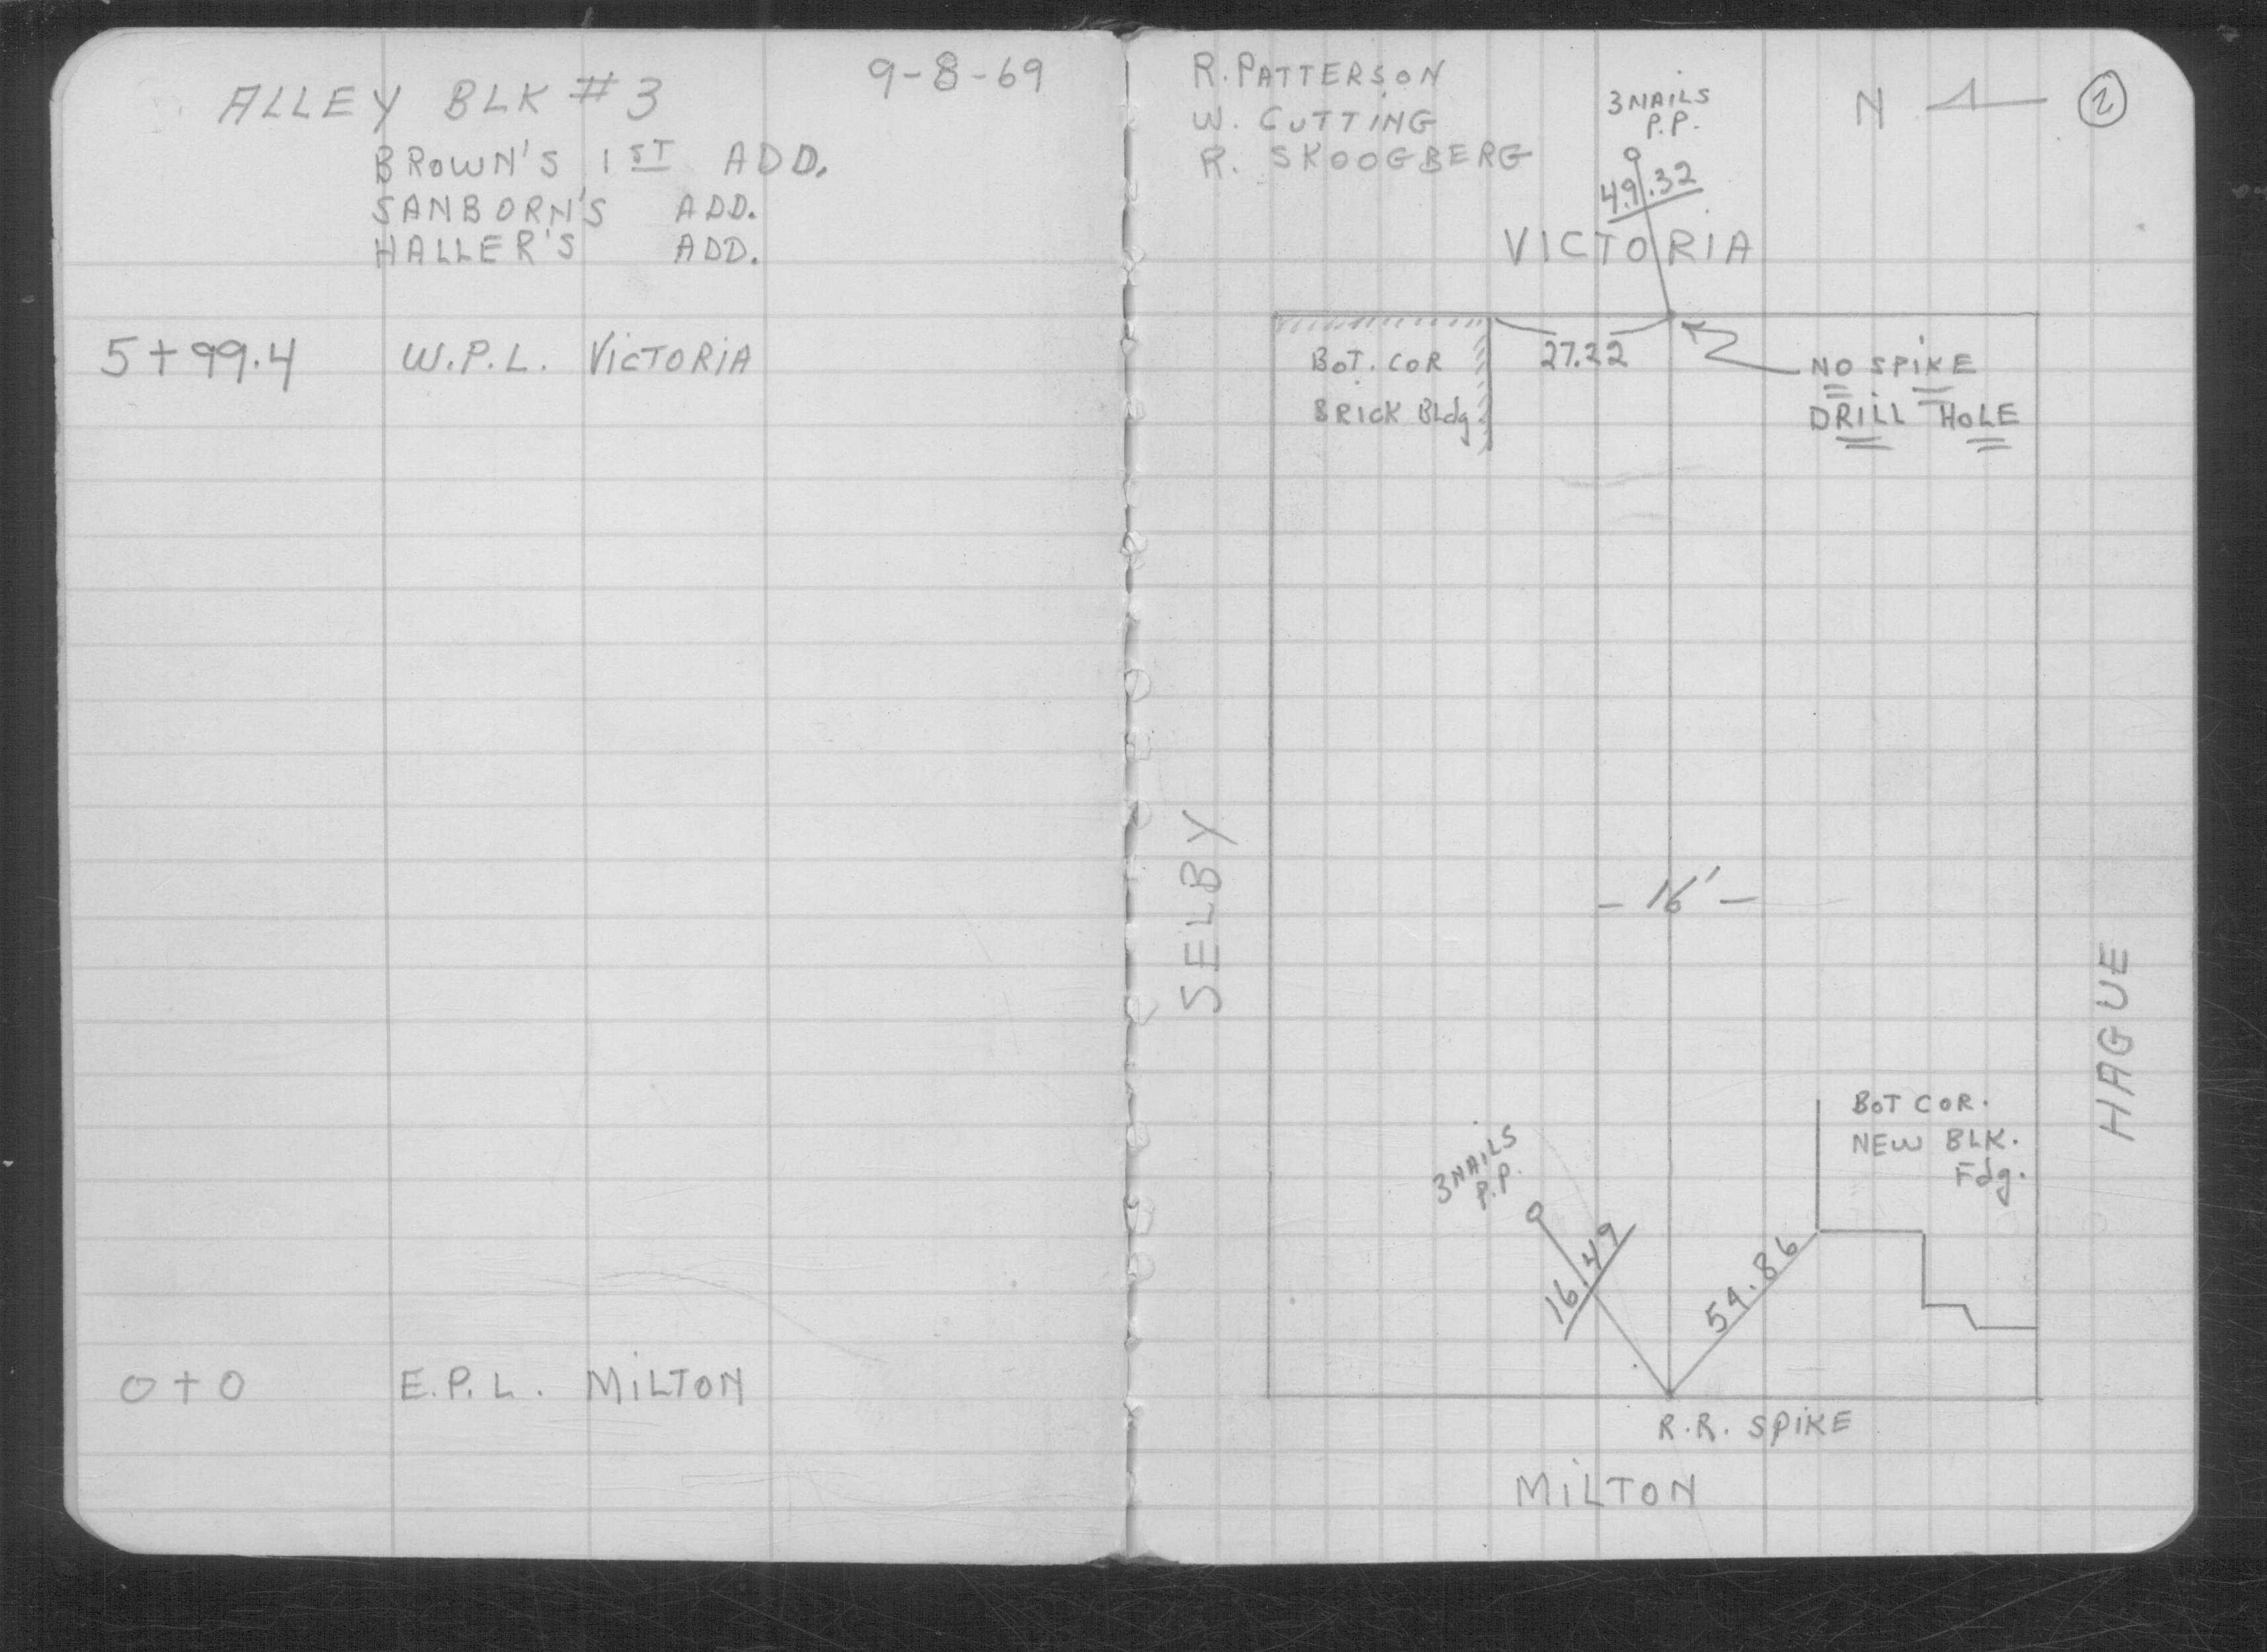 ALLEY BLK #3 9-8-69
BROWN'S 1ST ADD.
SANBORN'S ADD.
HALLER'S ADD.
5+99.4 W.P.L. VICTORIA
0+0 E.P.L. MILTON
R. PATTERSON
W. CUTTING
R. SKOOGBERG
3 NAILS
P.P.
N
2
49.32
VICTORIA
BOT. COR
BRICK Bldg.
27.22
NO SPIKE
DRILL HOLE
SELBY
- 16' -
HAGUE
BOT COR.
NEW BLK.
Fdg.
3 NAILS
P.P.
16.49
54.86
R.R. SPIKE
MILTON